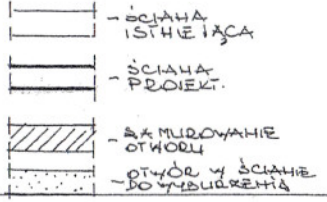 - ŚCIANA
ISTNIEJĄCA
- ŚCIANA
PROJEKT.
- ZAMUROWANIE
OTWORU
- OTWÓR W ŚCIANIE
DO WYBURZENIA